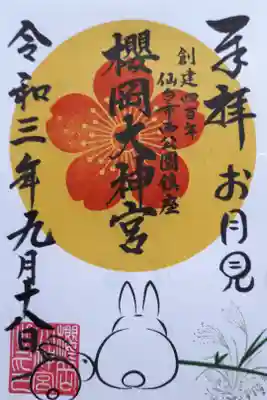 奉拝 お月見
創建四百年
仙台市西公園鎮座
櫻岡大神宮
令和三年九月十八日